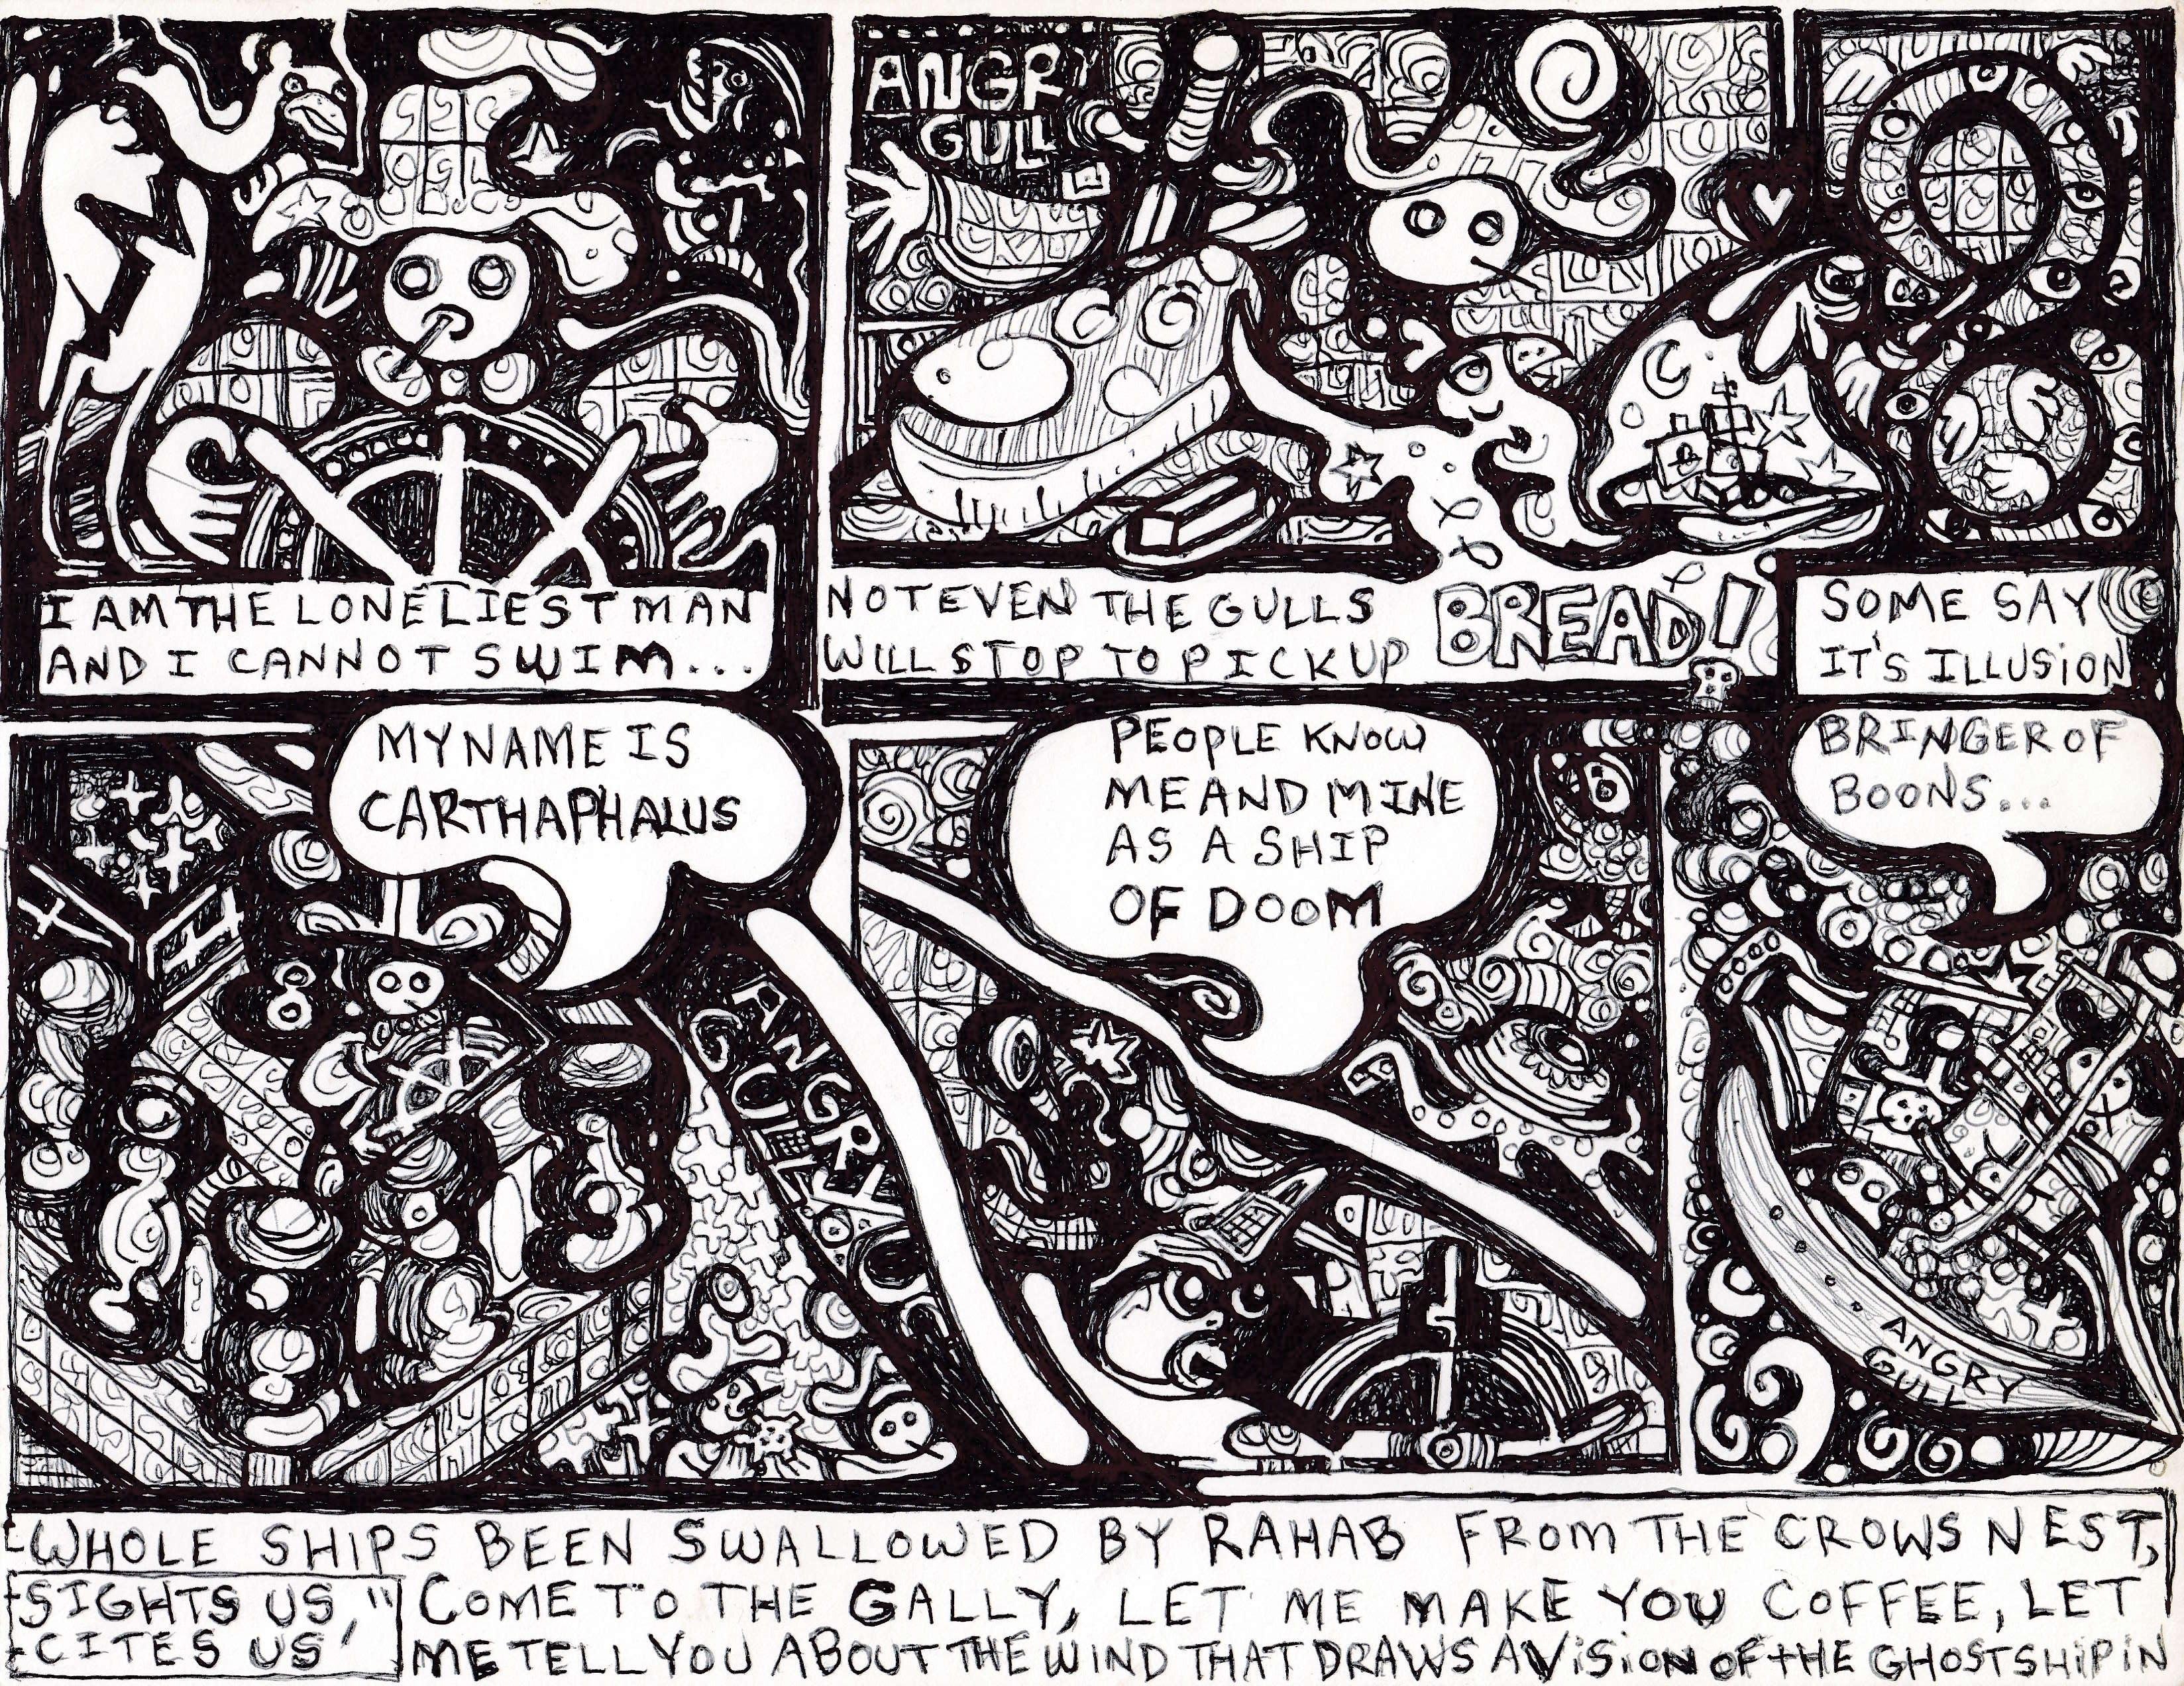 ANGRY
GULL
I AM THE LONELIEST MAN
AND I CANNOT SWIM...
NOT EVEN THE GULLS
WILL STOP TO PICK UP
BREAD!
SOME SAY
IT'S ILLUSION
MY NAME IS
CARTHAPHALUS
ANGRY
GULL
PEOPLE KNOW
ME AND MINE
AS A SHIP
OF DOOM
BRINGER OF
BOONS...
ANGRY
GULL
WHOLE SHIPS BEEN SWALLOWED BY RAHAB FROM THE CROWS NEST,
SIGHTS US,"
CITES US'
COME TO THE GALLY, LET ME MAKE YOU COFFEE, LET
ME TELL YOU ABOUT THE WIND THAT DRAWS A VISION OF THE GHOST SHIP IN